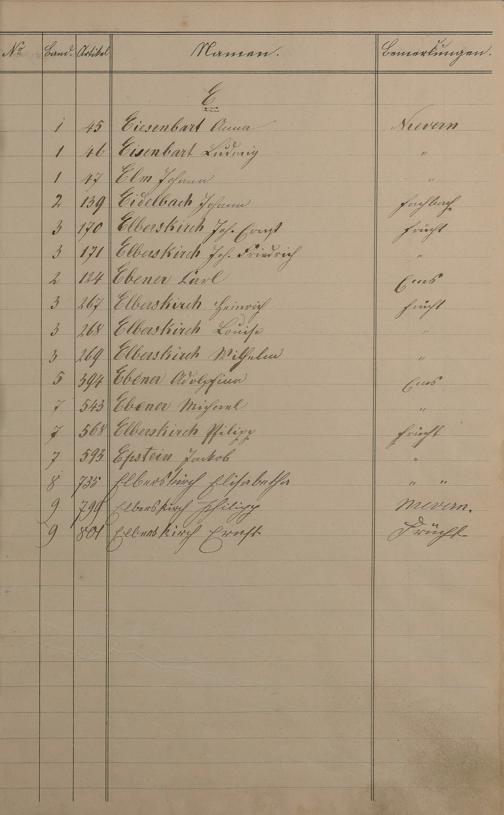 No Band. Artikel Namen. Bemerkungen.
E
1 45 Eisenbart Anna Nievern
1 46 Eisenbart Ludwig "
1 47 Elm Johann "
2 139 Eidelbach Johann Fachbach
3 170 Elberskirch Joh. Ernst Frücht
3 171 Elberskirch Joh. Friedrich "
2 124 Ebener Carl Ems
3 267 Elberskirch Heinrich Frücht
3 268 Elberskirch Louise "
3 269 Elberskirch Wilhelm "
5 394 Ebener Adolphine Ems
7 543 Ebener Michael "
7 568 Elberskirch Philipp Frücht
7 593 Epstein Jackob "
8 735 Elberskirch Elisabetha " "
9 794 Elberskirch Philipp Nievern.
9 801 Elberskirch Ernst Frücht